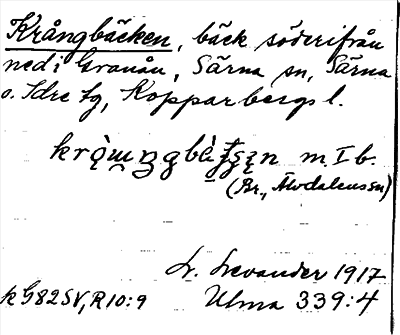 Krångbäcken, bäck söderifrån
ned i Granån, Särna sn, Särna
o. Idre tg, Kopparbergs l.
m I b.
(Br., Älvdalens sn)
L. Levander 1917
k G82SV, R10:9 Ulma 339:4